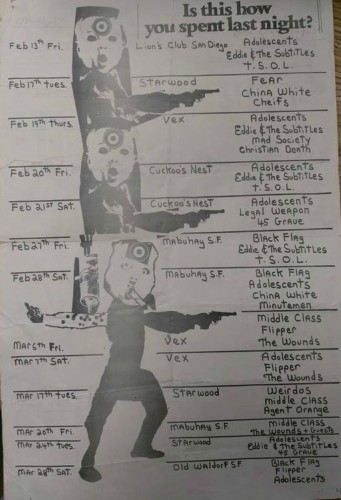 Is this how
you spent last night?
Feb 13th Fri. Lion's Club San Diego Adolescents
Eddie & The Subtitles
T.S.O.L.
Feb 17th Tues. Starwood Fear
China White
Cheifs
Feb 19th Thurs. Vex Adolescents
Eddie & The Subtitles
Mad Society
Christian Death
Feb 20th Fri. Cuckoo's Nest Adolescents
Eddie & The Subtitles
T.S.O.L.
Feb 21st Sat. Cuckoo's Nest Adolescents
Legal Weapon
45 Grave
Feb 27th Fri. Mabuhay S.F. Black Flag
Eddie & The Subtitles
T.S.O.L.
Feb 28th Sat. Mabuhay S.F. Black Flag
Adolescents
China White
Minutemen
Mar 6th Fri. Vex Middle Class
Flipper
The Wounds
Mar 7th Sat. Vex Adolescents
Flipper
The Wounds
Mar 17th Tues Starwood Weirdos
Middle Class
Agent Orange
Mar 20th Fri Mabuhay S.F. Middle Class
The Wounds + Guests
Mar 24th Tues. Starwood Adolescents
Eddie & The Subtitles
45 Grave
Mar 28th Sat. Old Waldorf S.F. Black Flag
Flipper
Adolescents